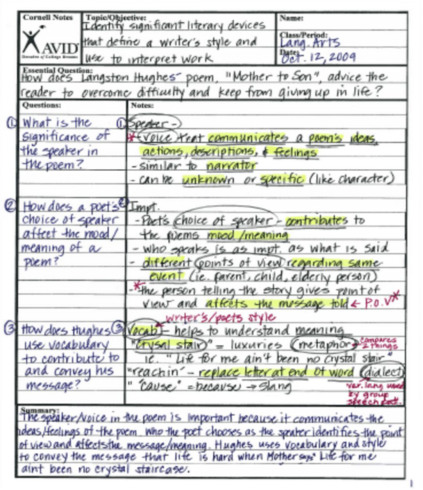 Cornell Notes
Topic/Objective:
Identify significant literary devices
that define a writer's style and
use to interpret work
Name:
Class/Period:
Lang. Arts
Date:
Oct. 12, 2009
AVID
Essential Question:
How does Langston Hughes' poem, "Mother to Son", advice the
reader to overcome difficulty and keep from giving up in life?
Questions:
Notes:
① What is the
significance of
the speaker in
the poem?
① Speaker -
* voice that communicates a poem's ideas,
actions, descriptions, & feelings
- similar to narrator
- can be unknown or specific (like character)
② How does a poet's
choice of speaker
affect the mood/
meaning of a
poem?
② Impt.
- Poet's choice of speaker - contributes to
the poems mood/meaning
- who speaks is as impt. as what is said
- different points of view regarding same
event (ie. parent, child, elderly person)
* the person telling the story gives point of
view and affects the message told ← P.O.V*
writer's/poets style
③ How does Hughes
use vocabulary
to contribute to
and convey his
message?
③ Vocab - helps to understand meaning
"crysal stair" = luxuries (metaphor) compares
2 things
ie. "Life for me ain't been no crystal stair"
"reachin' - replace letter at end of word (dialect)
"'cause" = because → slang
var. lang used
by group
speech patt.
Summary:
The speaker/voice in the poem is important because it communicates the
ideas/feelings of the poem. Who the poet chooses as the speaker identifies the point
of view and affects the message/meaning. Hughes uses vocabulary and style
to convey the message that life is hard when Mother says Life for me
aint been no crystal staircase.
1